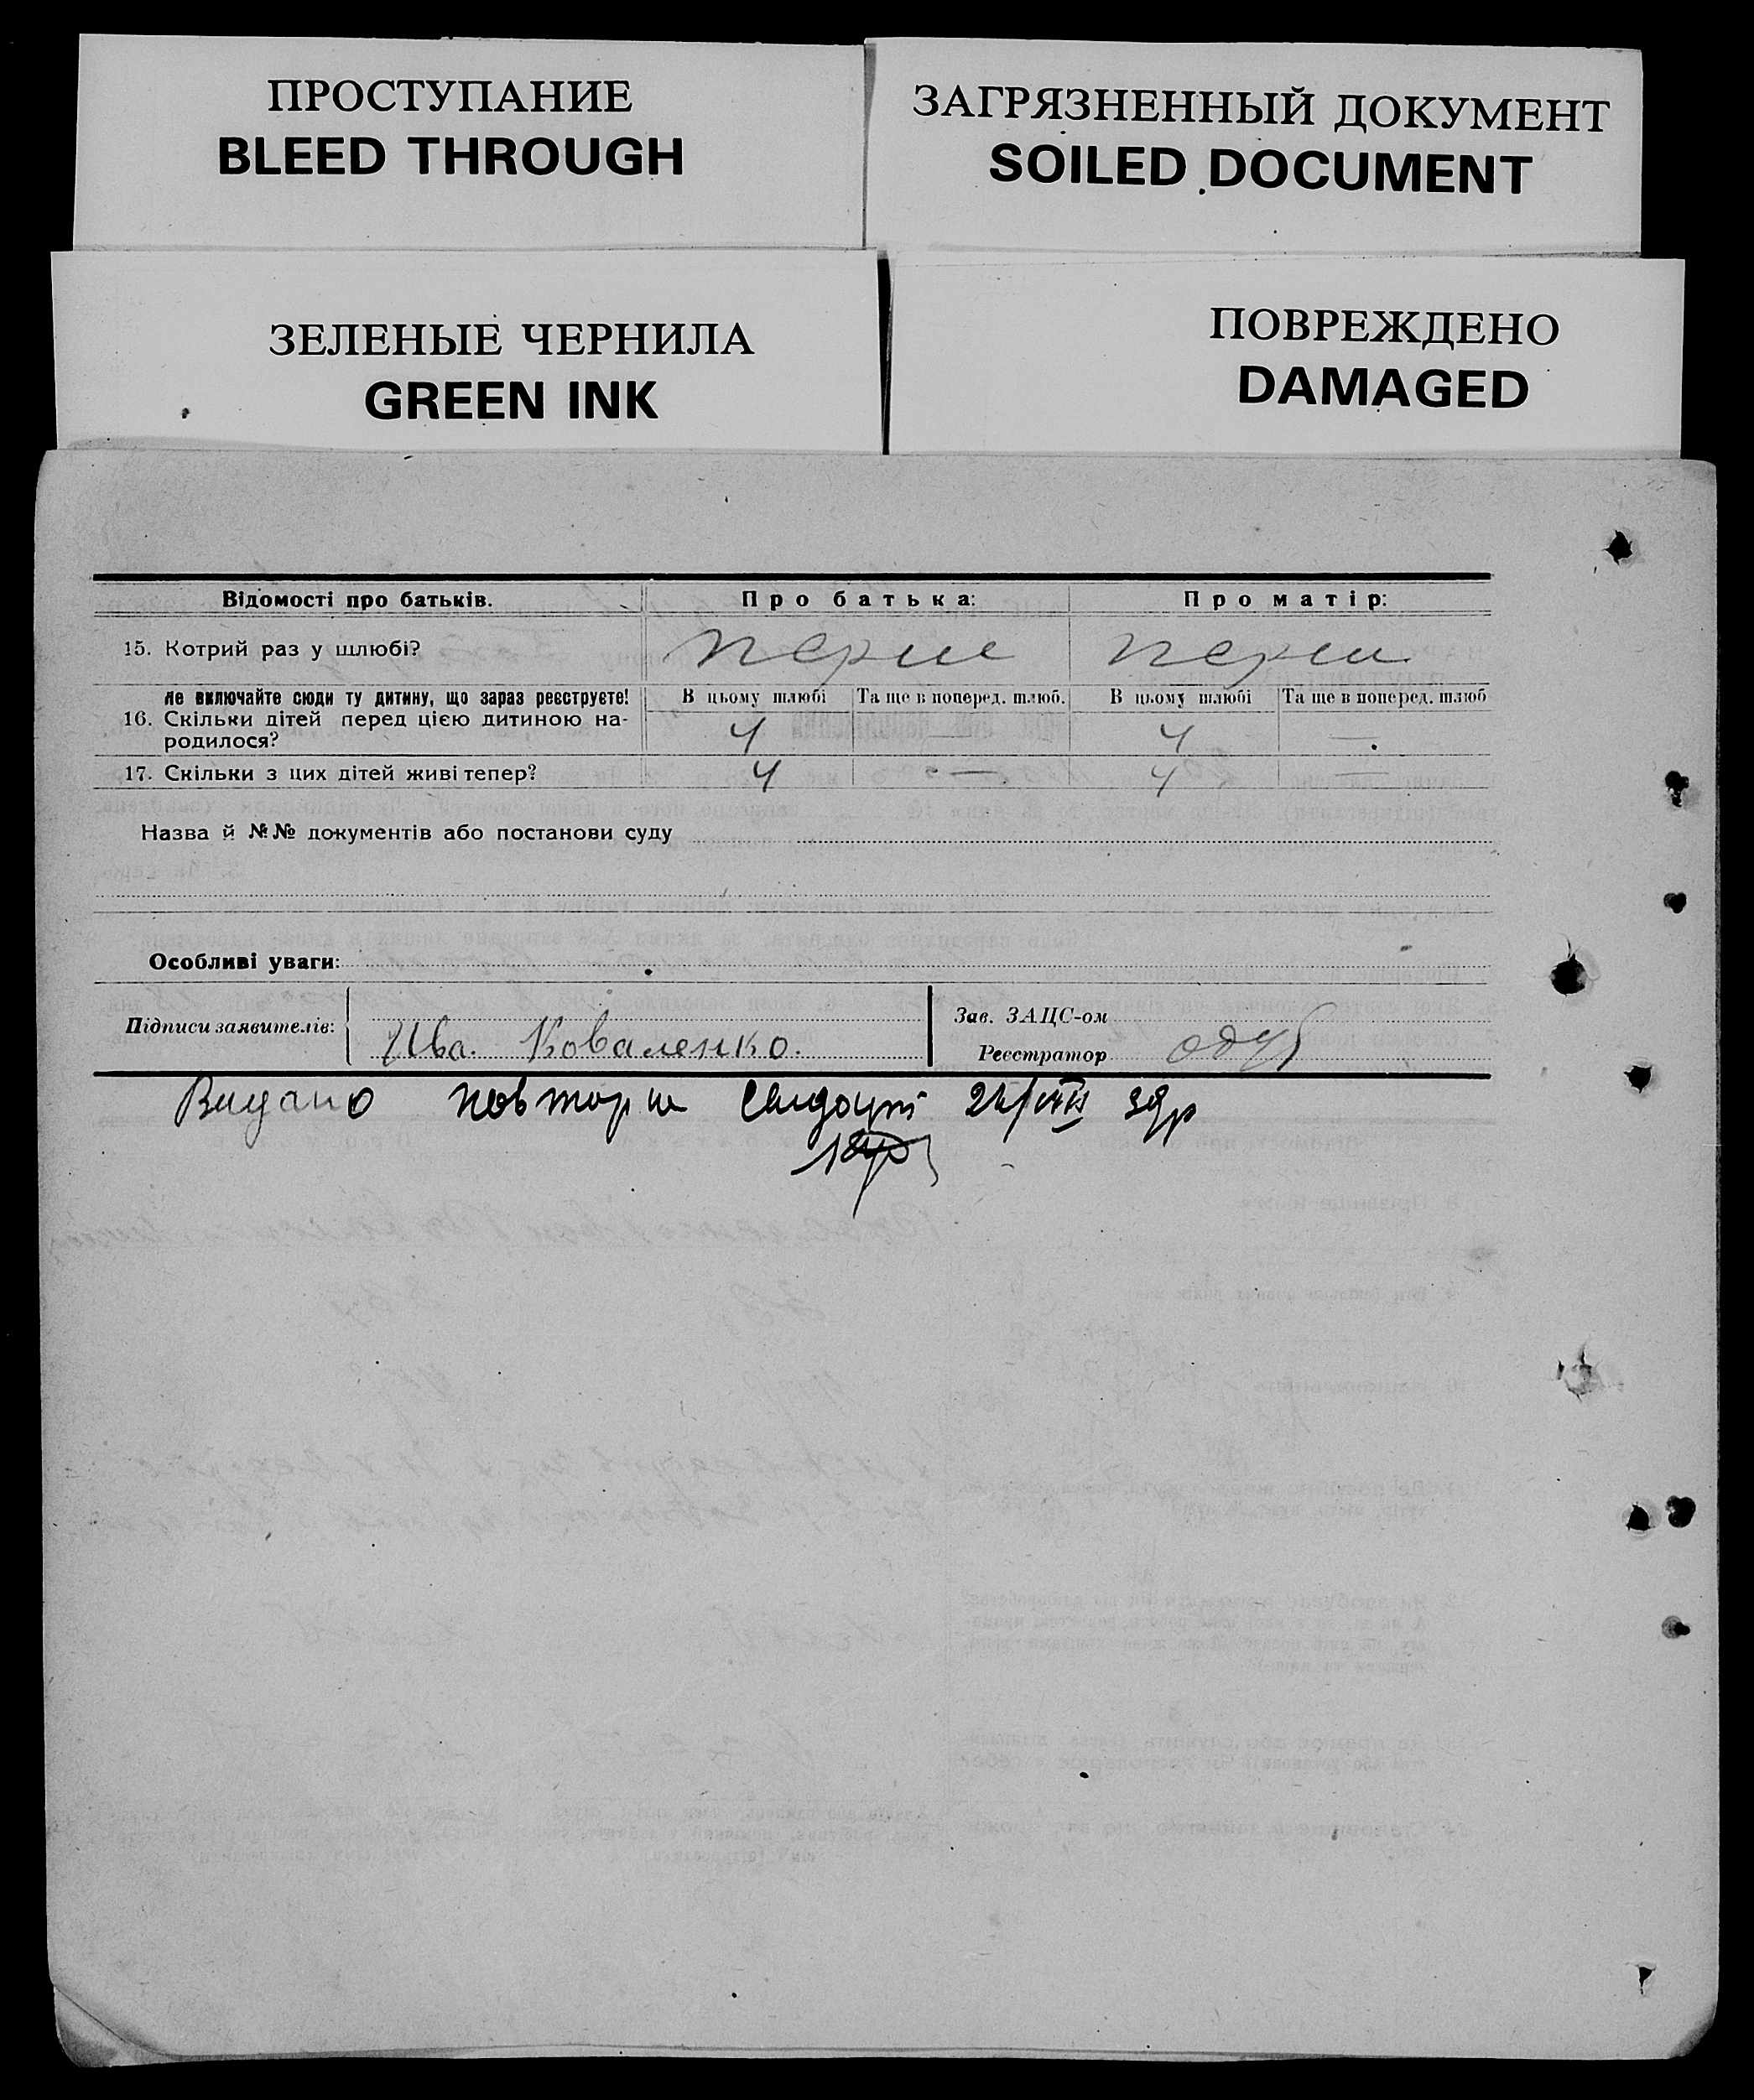 ПРОСТУПАНИЕ
BLEED THROUGH
ЗАГРЯЗНЕННЫЙ ДОКУМЕНТ
SOILED DOCUMENT
ЗЕЛЕНЫЕ ЧЕРНИЛА
GREEN INK
ПОВРЕЖДЕНО
DAMAGED
Відомості про батьків. Про батька: Про матір:
15. Котрий раз у шлюбі? перше перш
Не включайте сюди ту дитину, що зараз реєструєте! В цьому шлюбі Та ще в поперед. шлюб. В цьому шлюбі Та ще в поперед. шлюб
16. Скільки дітей перед цією дитиною на- 4 — 4 —
родилося?
17. Скільки з цих дітей живі тепер? 4 — 4 —
Назва й №№ документів або постанови суду
Особливі уваги:
Підписи заявителів: Ива. Коваленко.
Зав. ЗАЦС-ом
Реєстратор
Видано повторне